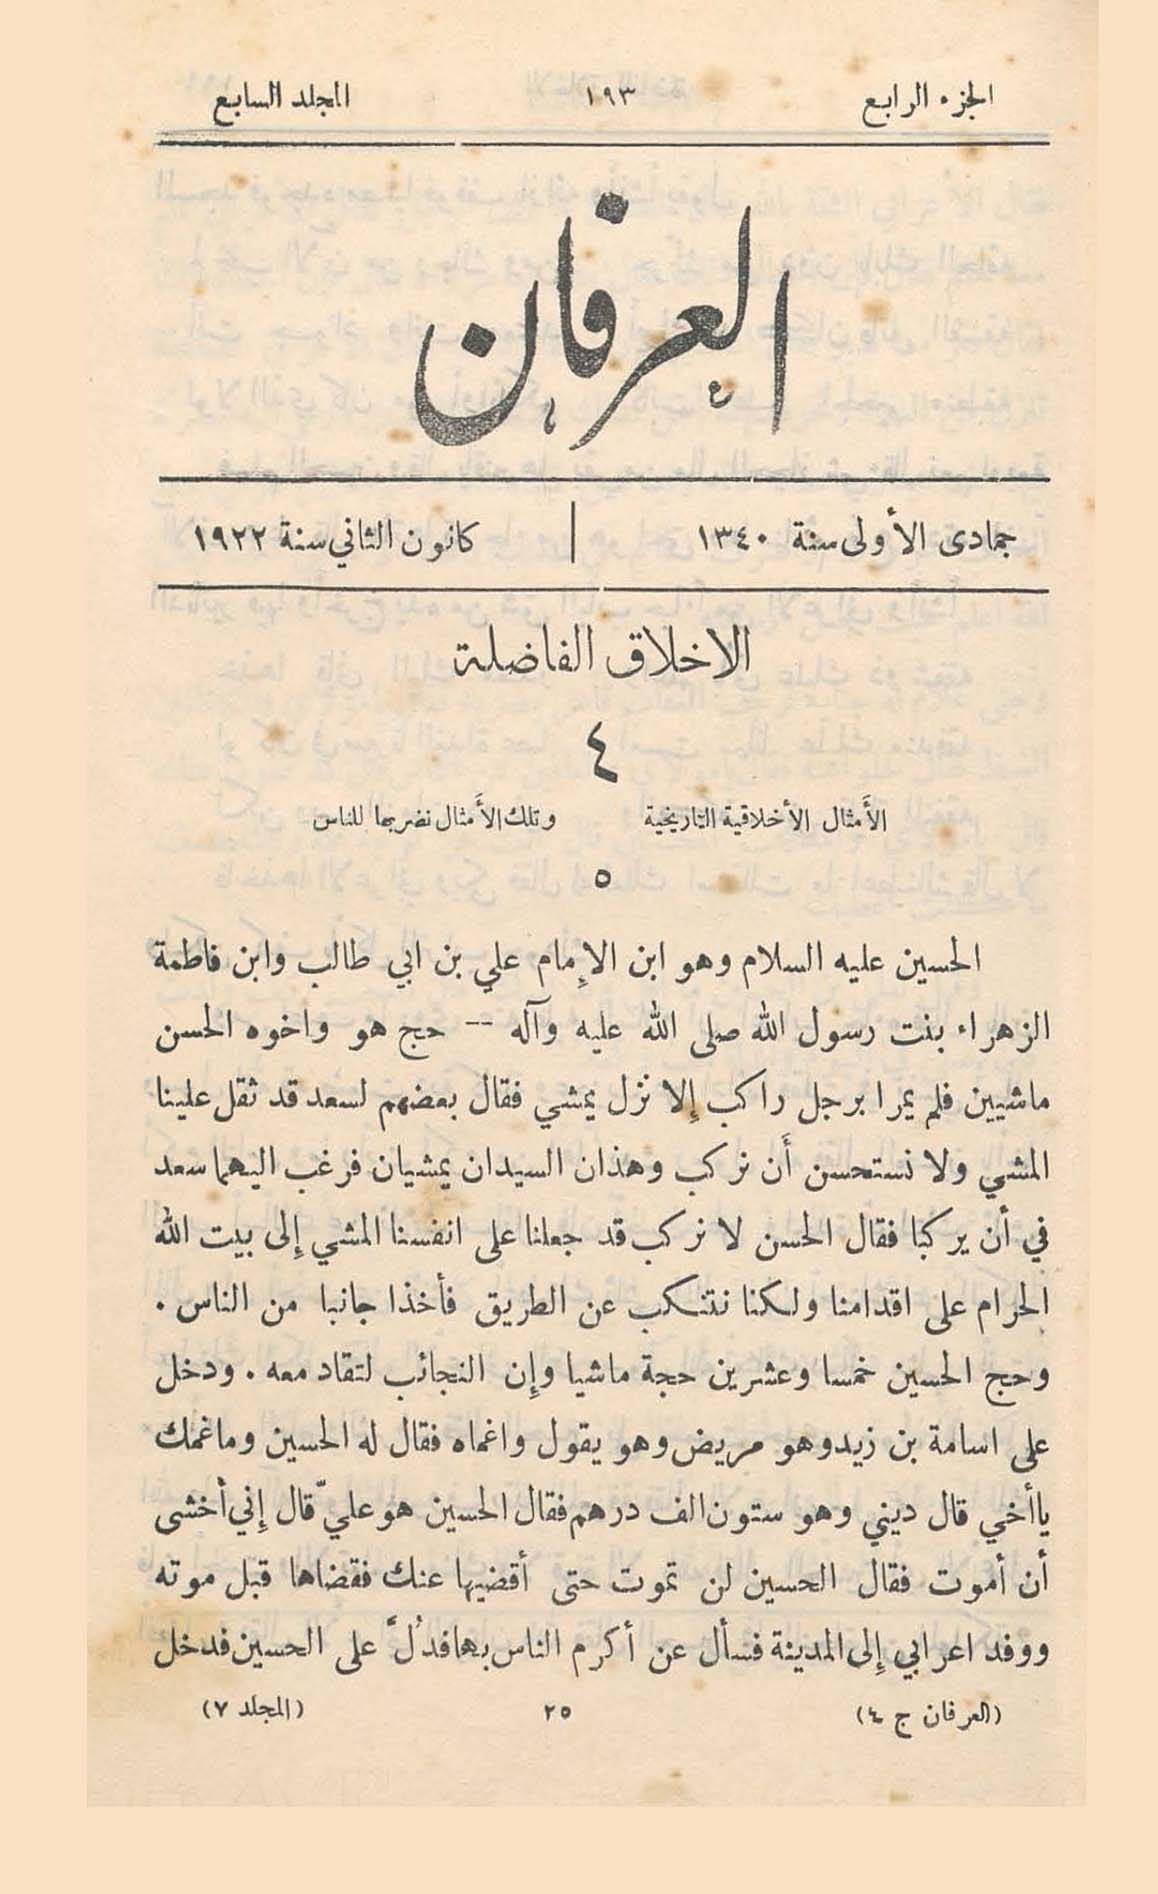 الجزء الرابع ١٩٣ المجلد السابع
العرفان
جمادى الأولى سنة ١٣٤٠ | كانون الثاني سنة ١٩٢٢
الاخلاق الفاضلة
٤
الأَمثال الأخلاقية التاريخية وتلك الأَمثال نضربها للناس
٥
الحسين عليه السلام وهو ابن الإِمام علي بن ابي طالب وابن فاطمة
الزهراء بنت رسول الله صلى الله عليه وآله -- حج هو واخوه الحسن
ماشيين فلم يمرا برجل راكب إِلا نزل يمشي فقال بعضهم لسعد قد ثقل علينا
المشي ولا نستحسن أَن نركب وهذان السيدان يمشيان فرغب اليهما سعد
في أن يركبا فقال الحسن لا نركب قد جعلنا على انفسنا المشي إِلى بيت الله
الحرام على اقدامنا ولكنا نتنكب عن الطريق فأخذا جانبا من الناس .
وحج الحسين خمسا وعشرين حجة ماشيا وإِن النجائب لتقاد معه . ودخل
على اسامة بن زيد وهو مريض وهو يقول واغماه فقال له الحسين وما غمك
يا أخي قال ديني وهو ستون الف درهم فقال الحسين هو عليّ قال إِني أخشى
أن أموت فقال الحسين لن تموت حتى أقضيها عنك فقضاها قبل موته
ووفد اعرابي إِلى المدينة فسأل عن أكرم الناس بها فدُلَّ على الحسين فدخل
(العرفان ج ٤) ٢٥ (المجلد ٧)